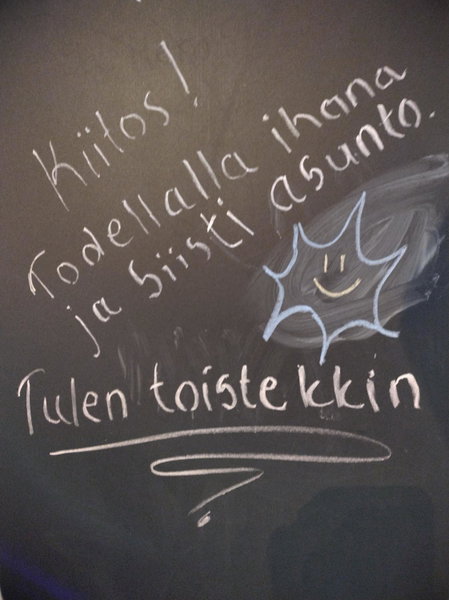 Kiitos!
Todellalla ihana
ja siisti asunto.
Tulen toistekkin